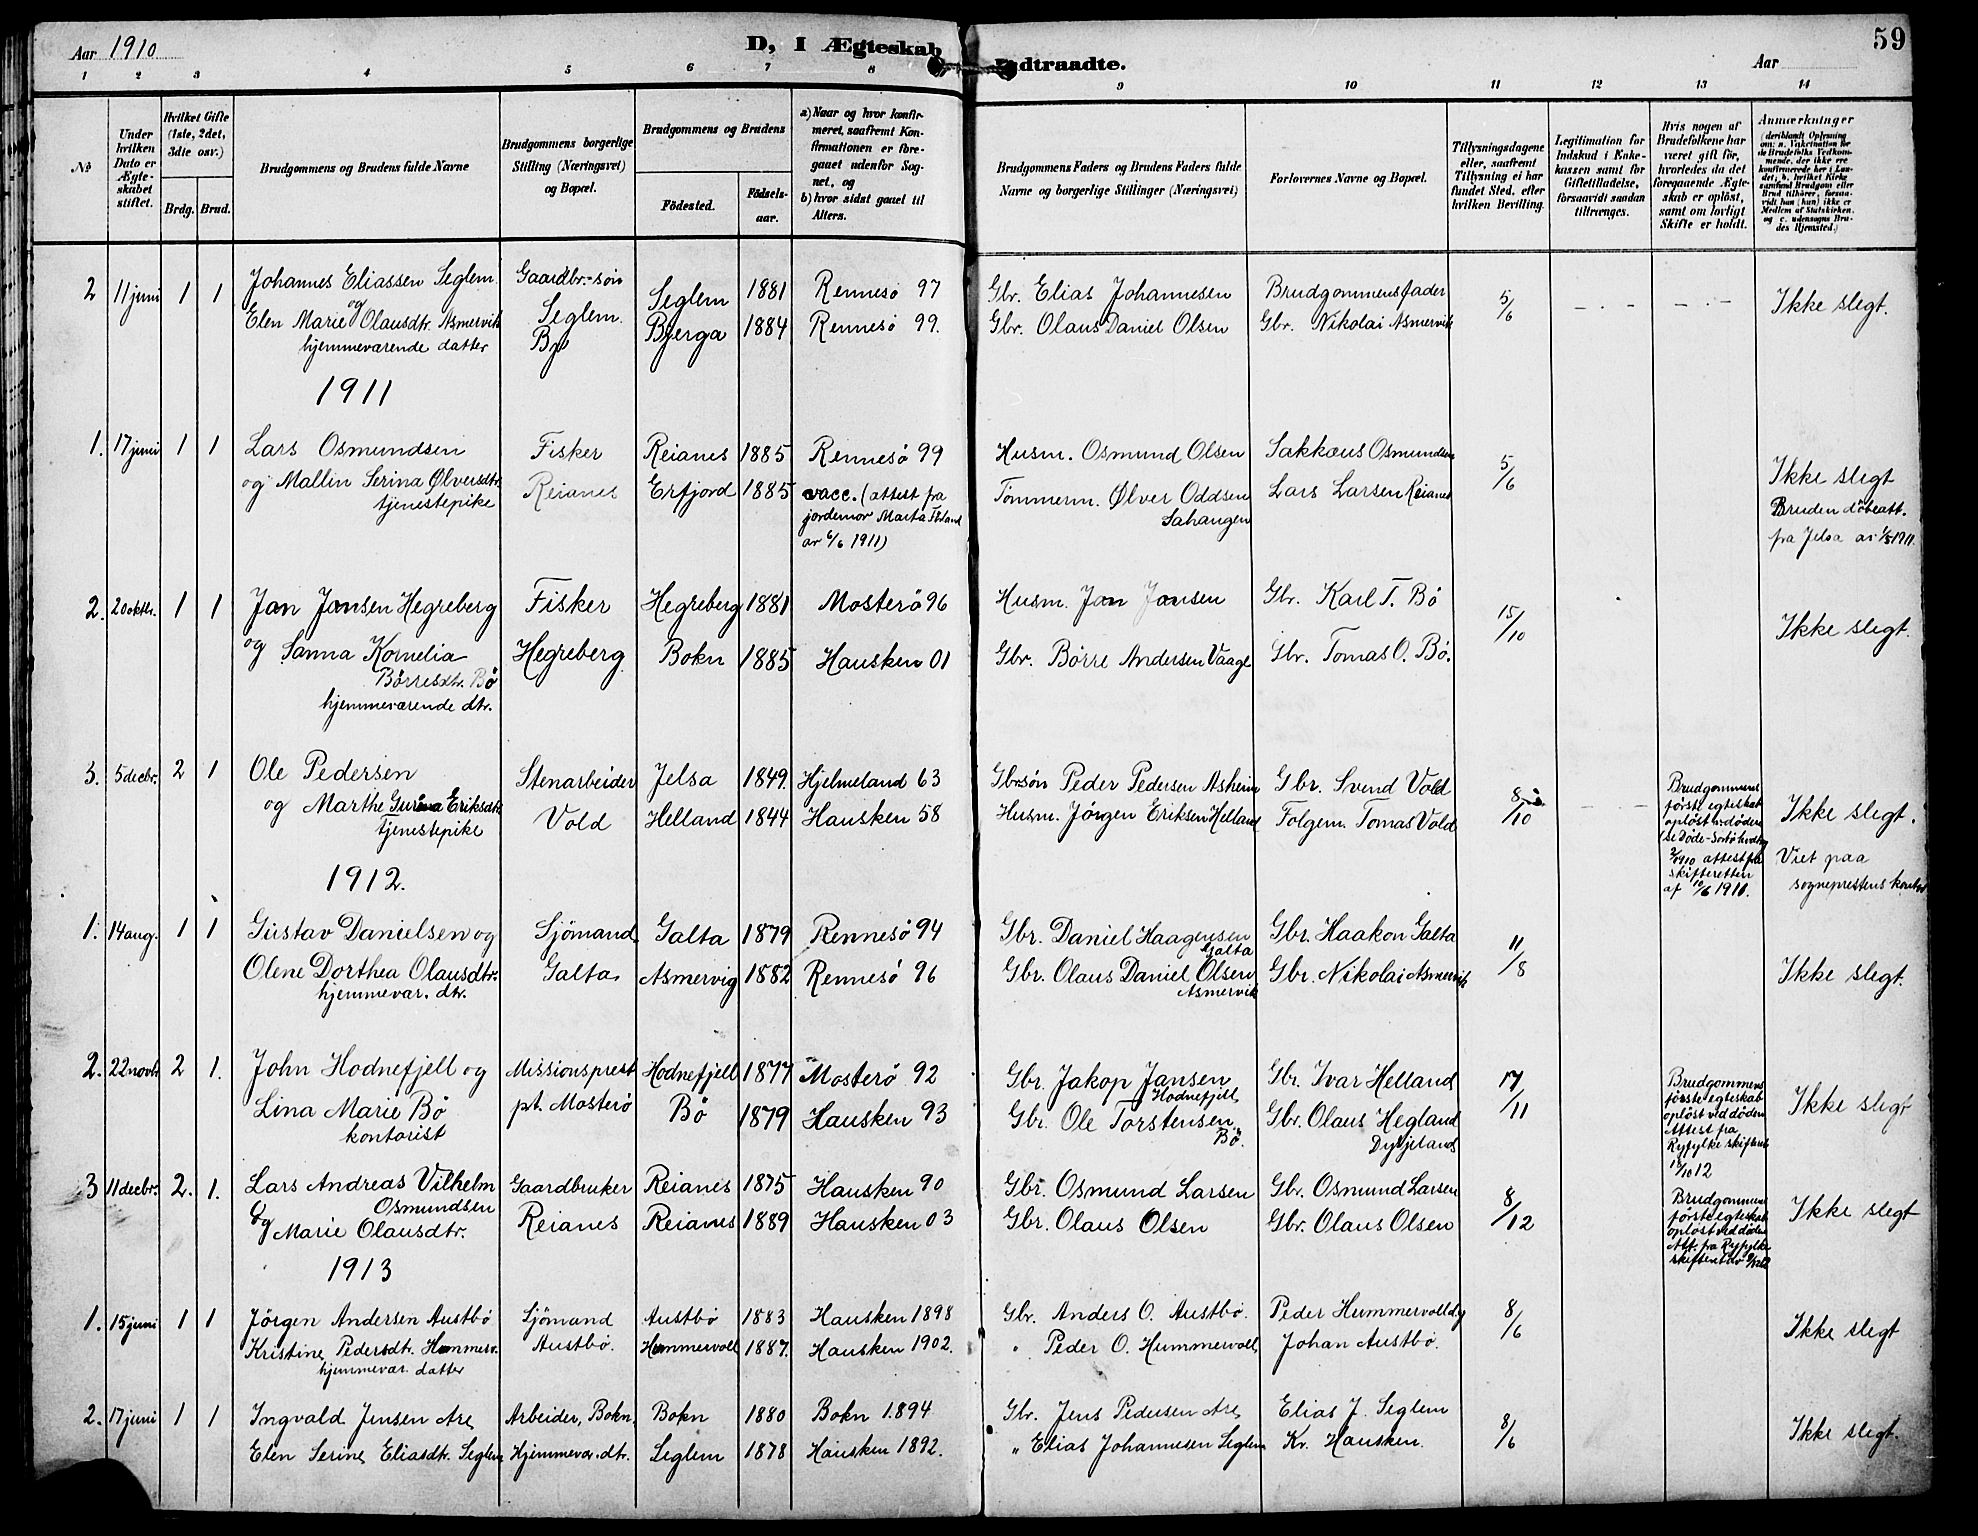 Aar 1910
D, I Ægteskab
Indtraadte.
Aar
59
1 2 3 4 5 6 7 8 9 10 11 12 13 14
No
Under hvilken Dato er Ægteskabet stiftet.
Hvilket Gifte (1ste, 2det, 3die osv.)
Brdg. Brud.
Brudgommens og Brudens fulde Navne
Brudgommens borgerlige Stilling (Næringsvei) og Bopæl.
Brudgommens og Brudens
Födested.
Födselsaar.
a) Naar og hvor konfirmeret, saafremt Konfirmationen er foregaaet udenfor Sognet, og
b) hvor sidst gaaet til Alters.
Brudgommens Faders og Brudens Faders fulde Navne og borgerlige Stillinger (Næringsvei)
Forlovernes Navne og Bopæl.
Tillysningsdagene eller, saafremt Tillysning ei har fundet Sted, efter hvilken Bevilling.
Legitimation for Indskud i Enkekassen samt for Giftetilladelse, forsaavidt saadan tiltrænges.
Hvis nogen af Brudefolkene har været gift för, hvorledes da det foregaaende Ægteskab er oplöst, samt om lovligt Skifte er holdt.
Anmærkninger
(deriblandt Oplysning om: a. Vakcination for de Brudefolks Vedkommende, der ikke ere konfirmerede her i Landet, b. hvilket Kirkesamfund Brudgom eller Brud tilhörer, forsaavidt han (hun) ikke er Medlem af Statskirken, og c. udensogns Brudes Hjemsted.)
2 11 juni 1 1 Johannes Eliassen Seglem Gaardbr.-søn Seglem 1881 Rennesö 97 Gbr. Elias Johannesen Brudgommens fader 5/6 Ikke slegt.
og
Elen Marie Olausdtr. Asmervik Seglem. Bjerga 1884 Rennesö 99. Gbr. Olaus Daniel Olsen Gbr. Nikolai Asmervik
hjemmeværende datter
1911
1. 17 juni 1 1 Lars Osmundsen Fisker Reianes 1885 Rennesö 99 Husm. Osmund Olsen Sakkæus Osmundsen 5/6 Ikke slegt
og Mallin Serina Ølversdtr. Reianes Erfjord 1885 vacc. (attest fra Tömmerm. Ølver Oddsen Lars Larsen Reianes
tjenestepike jordemor Marta Sahaugen Bruden döbeatt.
av 6/6 1911) fra Jelsa
2. 20 oktbr. 1 1 Jan Jansen Hegreberg Fisker Hegreberg 1881 Mosterö 96 Husm. Jan Jansen Gbr. Karl T. Bö 15/10 Ikke slegt.
og Sanna Kornelia Hegreberg Bokn 1885 Hausken 01 Gbr. Börre Andersen Vaage Gbr. Tomas O. Bö.
Börresdtr. Bö
hjemmeværende dtr.
3. 5 decbr. 2 1 Ole Pedersen Stenarbeider Jelsa 1849. Hjelmeland 63 Gbrsön Peder Pedersen Asheim Gbr. Svend Vold 8/10 Brudgommens förste egteskab oplöst v. döden Ikke slegt.
og Marthe Eriksdtr. Vold Helland 1844 Hausken 58 Husm. Jörgen Eriksen Helland Folgem. Tomas Vold
Tjenestepike attest fra skifteretten af 10/6 1910. Viet paa sogneprestens kontor
1912.
1. 14 aug. 1 1 Gustav Danielsen og Sjömand Galta 1879 Rennesö 94 Gbr. Daniel Haagensen Galta Gbr. Haakon Galta 11/8
Olene Dorthea Olausdtr. Galta Asmervig 1882 Rennesö 96 Gbr. Olaus Daniel Olsen Asmervik Gbr. Nikolai Asmervik Ikke slegt.
hjemmevar. dtr.
2. 22 novbr 2 1. John Hodnefjell og Missionsprest Hodnefjell 1877 Mosterö 92 Gbr. Jakop Jansen Hodnefjell Gbr. Ivar Helland 17/11 Brudgommens förste egteskab oplöst ved döden Attest fra Ryfylke skifteret 12 Ikke slegt
Lina Marie Bö pt. Mosterö Bö 1879 Hausken 93 Gbr. Ole Torstensen Bö. Gbr. Olaus Hegland
kontorist
3 11 decbr. 2. 1. Lars Andreas Vilhelm Osmundsen Gaardbruker Reianes 1875 Hausken 90 Gbr. Osmund Larsen Gbr. Osmund Larsen 8/12 Brudgommens förste egteskab oplöst ved döden Att. fra Ryfylke skifteret Ikke slegt
og Marie Olausdtr. Reianes Reianes 1889 Hausken 03 Gbr. Olaus Olsen Gbr. Olaus Olsen
1913
1. 15 juni 1 1 Jörgen Andersen Austbö Sjömand Austbö 1883 Hausken 1898 Gbr. Anders O. Austbö. Peder Hummervoll 8/6 Ikke slegt
Kristine Pedersdt. Hummerv. Austbö. Hummervoll 1887. Hausken 1902. " Peder O. Hummervoll, Johan Austbö.
hjemmevar. datter
2. 17 juni 1 1 Ingvald Jensen Are Arbeider, Bokn. Bokn 1880 Bokn 1894 Gbr. Jens Pedersen Are Elias J. Seglem 8/6 Ikke slegt.
Elen Serine Eliasdt. Seglem Hjemmevar. dtr. Seglem 1878 Hausken 1892. " Elias Johannesen Seglem Kr. Hausken.